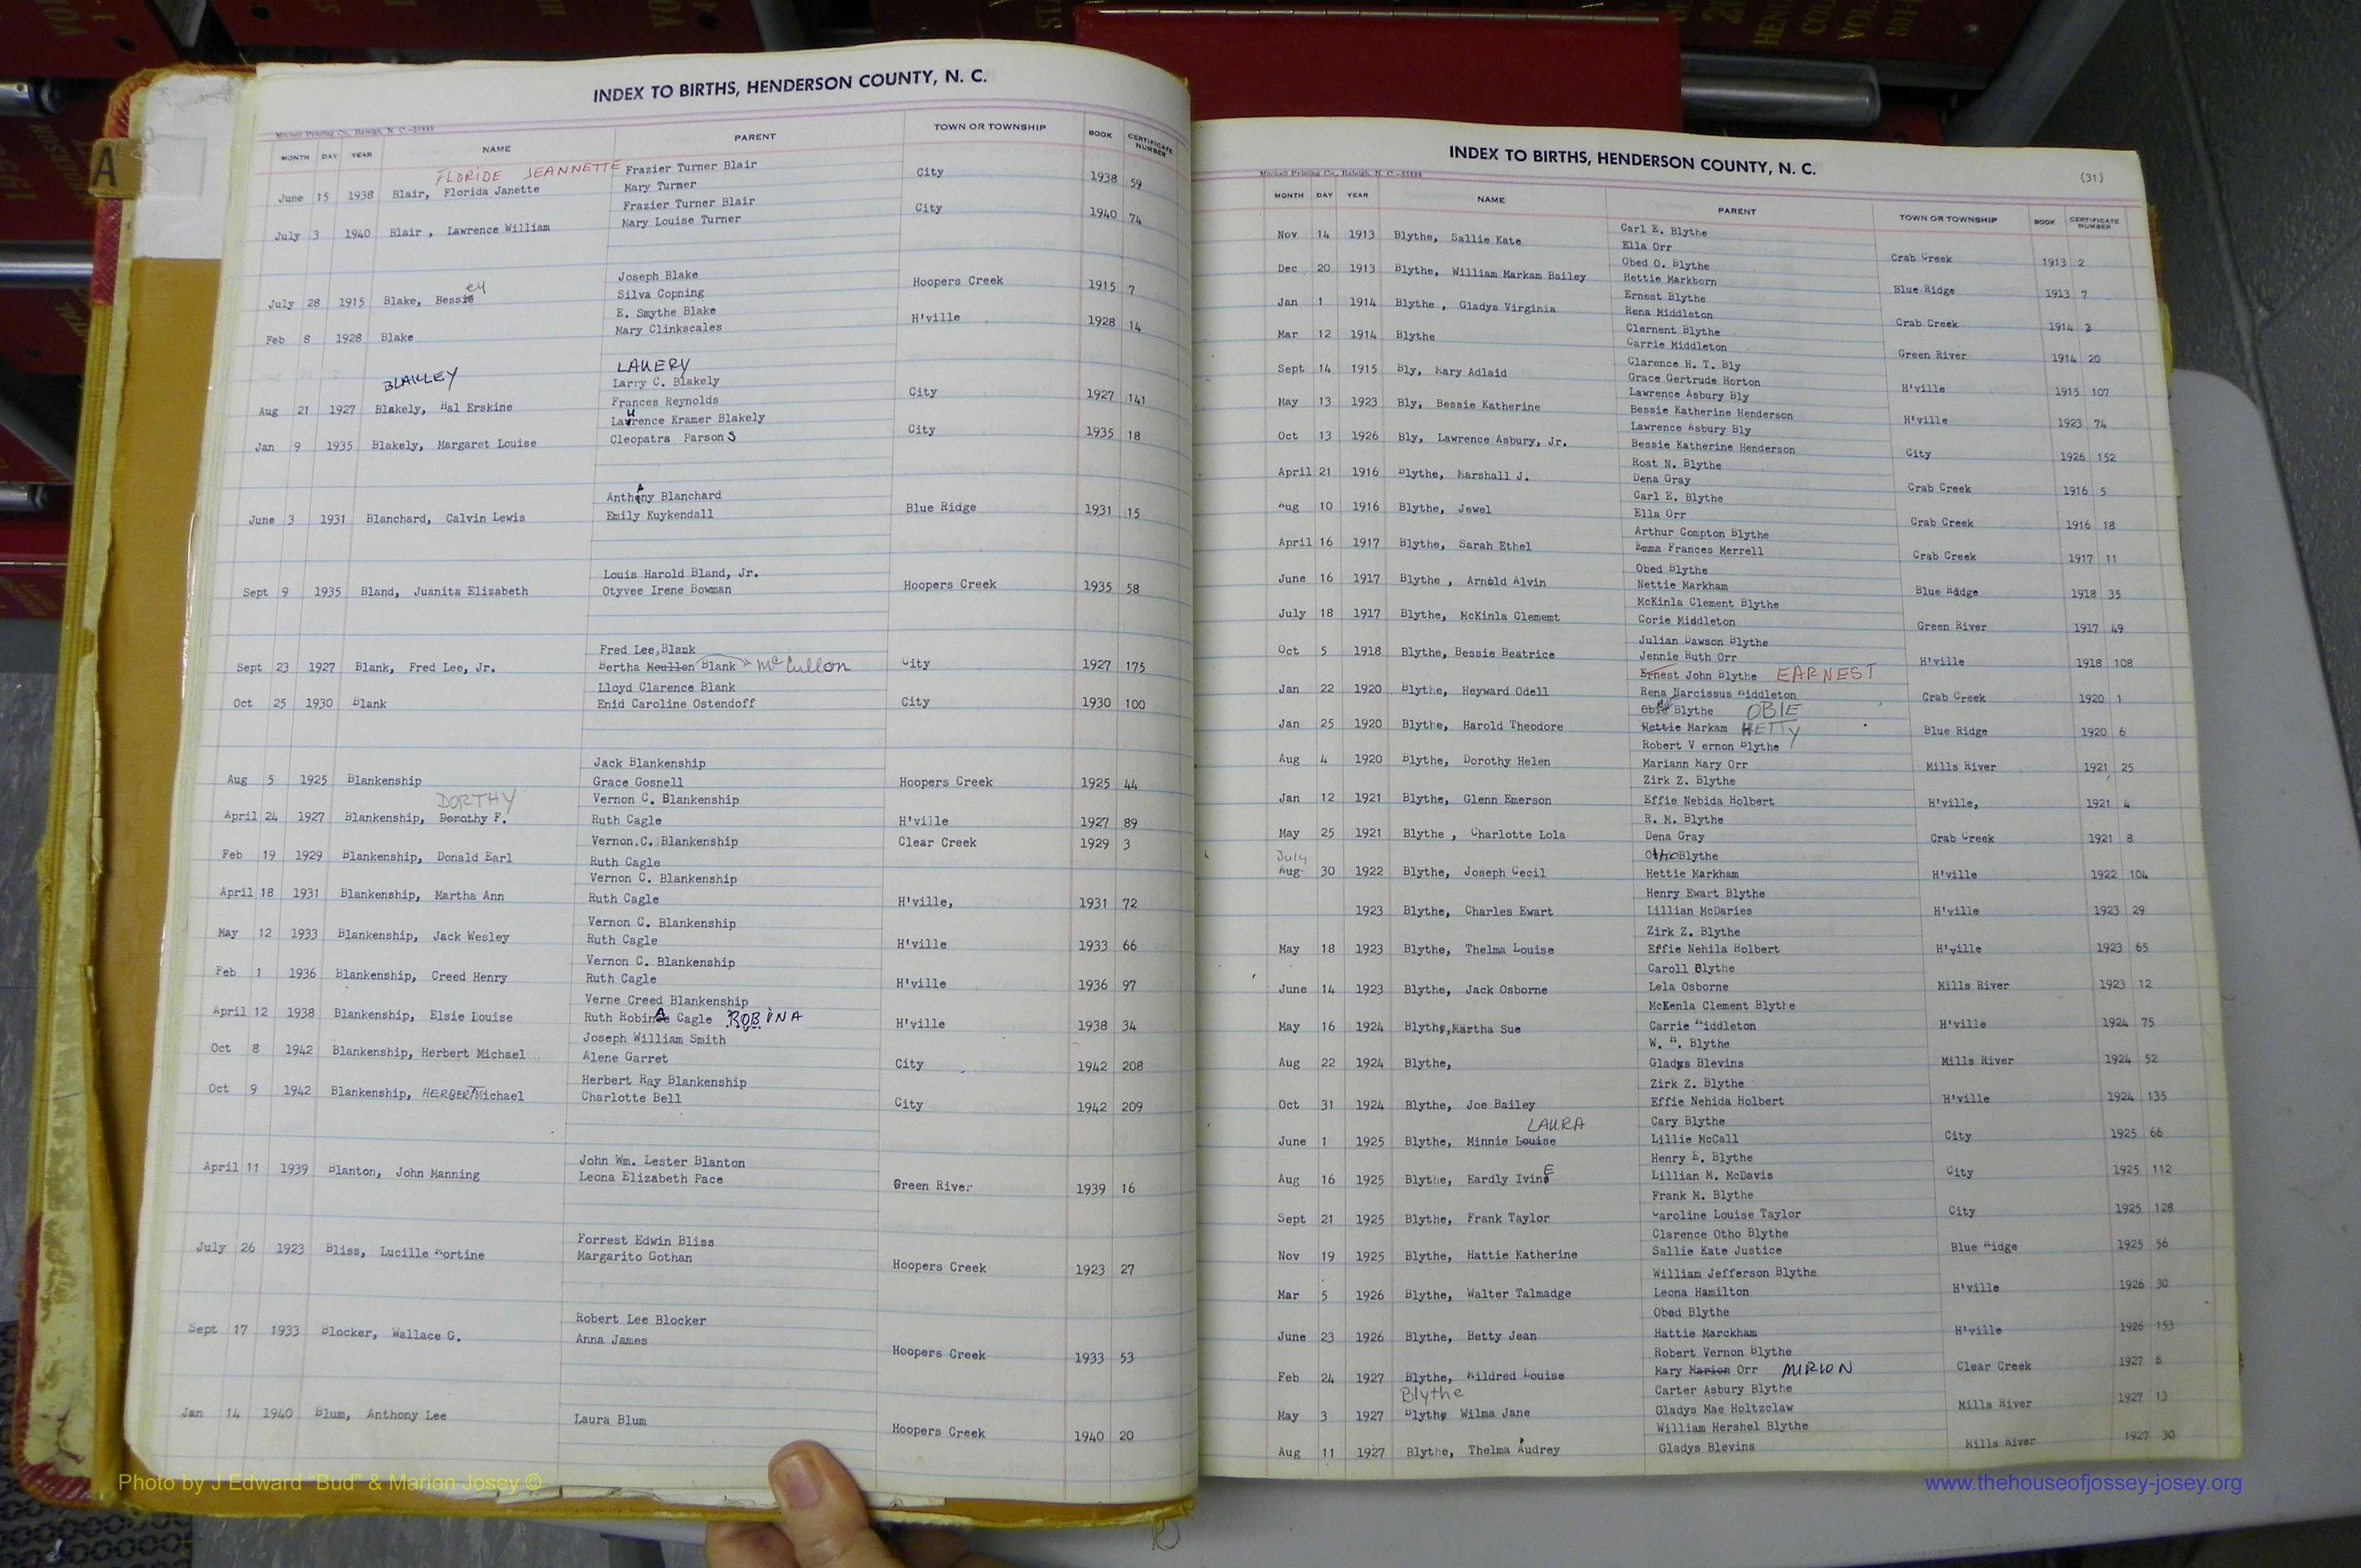 INDEX TO BIRTHS, HENDERSON COUNTY, N. C.
Mitchell Printing Co., Raleigh, N. C.
MONTH DAY YEAR NAME PARENT TOWN OR TOWNSHIP BOOK CERTIFICATE NUMBER
FLORIDE JEANNETTE Frazier Turner Blair
June 15 1938 Blair, Florida Janette Mary Turner City 1938 59
Frazier Turner Blair
July 3 1940 Blair, Lawrence William Mary Louise Turner City 1940 74
Joseph Blake
ey
July 28 1915 Blake, Bessie Silva Copning Hoopers Creek 1915 7
E. Smythe Blake
Feb 8 1928 Blake Mary Clinkscales H'ville 1928 14
BLAKLEY LAUERY
Larry C. Blakely
Aug 21 1927 Blakely, Hal Erskine Frances Reynolds City 1927 141
Laurence Kramer Blakely
Jan 9 1935 Blakely, Margaret Louise Cleopatra Parsons City 1935 18
Anthany Blanchard
June 3 1931 Blanchard, Calvin Lewis Emily Kuykendall Blue Ridge 1931 15
Louis Harold Bland, Jr.
Sept 9 1935 Bland, Juanita Elizabeth Otyvee Irene Bowman Hoopers Creek 1935 58
Fred Lee, Blank
Sept 23 1927 Blank, Fred Lee, Jr. Bertha Meullen Blank McCullon City 1927 175
Lloyd Clarence Blank
Oct 25 1930 Blank Enid Caroline Ostendoff City 1930 100
Jack Blankenship
Aug 5 1925 Blankenship Grace Gosnell Hoopers Creek 1925 44
DORTHY Vernon C. Blankenship
April 24 1927 Blankenship, Dorothy F. Ruth Cagle H'ville 1927 89
Vernon.C. Blankenship Clear Creek 1929 3
Feb 19 1929 Blankenship, Donald Earl Ruth Cagle
Vernon C. Blankenship
April 18 1931 Blankenship, Martha Ann Ruth Cagle H'ville, 1931 72
Vernon C. Blankenship
May 12 1933 Blankenship, Jack Wesley Ruth Cagle H'ville 1933 66
Vernon C. Blankenship
Feb 1 1936 Blankenship, Creed Henry Ruth Cagle H'ville 1936 97
Verne Creed Blankenship
April 12 1938 Blankenship, Elsie Louise Ruth Robina Cagle ROBINA H'ville 1938 34
Joseph William Smith
Oct 8 1942 Blankenship, Herbert Michael Alene Garret City 1942 208
Herbert Ray Blankenship
Oct 9 1942 Blankenship, HERBERT Michael Charlotte Bell City 1942 209
John Wm. Lester Blanton
April 11 1939 Blanton, John Manning Leona Elizabeth Pace Green River 1939 16
Forrest Edwin Bliss
July 26 1923 Bliss, Lucille Hortine Margarito Gothan Hoopers Creek 1923 27
Robert Lee Blocker
Sept 17 1933 Blocker, Wallace G. Anna James Hoopers Creek 1933 53
Jan 14 1940 Blum, Anthony Lee Laura Blum Hoopers Creek 1940 20
INDEX TO BIRTHS, HENDERSON COUNTY, N. C.
(31)
Mitchell Printing Co., Raleigh, N. C.
MONTH DAY YEAR NAME PARENT TOWN OR TOWNSHIP BOOK CERTIFICATE NUMBER
Carl E. Blythe
Nov 14 1913 Blythe, Sallie Kate Ella Orr Crab Creek 1913 2
Obed O. Blythe
Dec 20 1913 Blythe, William Markam Bailey Hettie Markborn Blue Ridge 1913 7
Ernest Blythe
Jan 1 1914 Blythe, Gladys Virginia Rena Middleton Crab Creek 1914 2
Clernent Blythe
Mar 12 1914 Blythe Carrie Middleton Green River 1914 20
Clarence H. T. Bly
Sept 14 1915 Bly, Mary Adlaid Grace Gertrude Horton H'ville 1915 107
Lawrence Asbury Bly
May 13 1923 Bly, Bessie Katherine Bessie Katherine Henderson H'ville 1923 74
Lawrence Asbury Bly
Oct 13 1926 Bly, Lawrence Asbury, Jr. Bessie Katherine Henderson City 1926 152
Roat N. Blythe
April 21 1916 Blythe, Marshall J. Dena Gray Crab Creek 1916 5
Carl E. Blythe
Aug 10 1916 Blythe, Jewel Ella Orr Crab Creek 1916 18
Arthur Compton Blythe
April 16 1917 Blythe, Sarah Ethel Emma Frances Merrell Crab Creek 1917 11
Obed Blythe
June 16 1917 Blythe, Arnold Alvin Nettie Markham Blue Ridge 1918 35
McKinla Clement Blythe
July 18 1917 Blythe, McKinla Clememt Corie Middleton Green River 1917 49
Julian Dawson Blythe
Oct 5 1918 Blythe, Bessie Beatrice Jennie Ruth Orr H'ville 1918 108
Ernest John Blythe EARNEST
Jan 22 1920 Blythe, Heyward Odell Rena Narcissus Middleton Crab Creek 1920 1
Obie Blythe OBIE
Jan 25 1920 Blythe, Harold Theodore Hettie Markam HETTY Blue Ridge 1920 6
Robert V ernon Blythe
Aug 4 1920 Blythe, Dorothy Helen Mariann Mary Orr Mills River 1921 25
Zirk Z. Blythe
Jan 12 1921 Blythe, Glenn Emerson Effie Nebida Holbert H'ville, 1921 4
R. M. Blythe
May 25 1921 Blythe, Charlotte Lola Dena Gray Crab Creek 1921 8
July Otho Blythe
Aug 30 1922 Blythe, Joseph Cecil Hettie Markham H'ville 1922 104
Henry Ewart Blythe
1923 Blythe, Charles Ewart Lillian McDaries H'ville 1923 29
Zirk Z. Blythe
May 18 1923 Blythe, Thelma Louise Effie Nehila Holbert H'ville 1923 65
Caroll Blythe
June 14 1923 Blythe, Jack Osborne Lela Osborne Mills River 1923 12
McKenla Clement Blythe
May 16 1924 Blythe, Martha Sue Carrie Middleton H'ville 1924 75
W. H. Blythe
Aug 22 1924 Blythe, Gladys Blevins Mills River 1924 52
Zirk Z. Blythe
Oct 31 1924 Blythe, Joe Bailey Effie Nehida Holbert H'ville 1924 135
LAURA Cary Blythe
June 1 1925 Blythe, Minnie Louise Lillie McCall City 1925 66
Henry E. Blythe
Aug 16 1925 Blythe, Eardly Ivine Lillian M. McDavis City 1925 112
Frank M. Blythe
Sept 21 1925 Blythe, Frank Taylor Caroline Louise Taylor City 1925 128
Clarence Otho Blythe
Nov 19 1925 Blythe, Hattie Katherine Sallie Kate Justice Blue Ridge 1925 56
William Jefferson Blythe
Mar 5 1926 Blythe, Walter Talmadge Leona Hamilton H'ville 1926 30
Obed Blythe
June 23 1926 Blythe, Betty Jean Hattie Marckham H'ville 1926 153
Robert Vernon Blythe
Feb 24 1927 Blythe, Mildred Louise Mary Marion Orr MIRION Clear Creek 1927 6
Blythe Carter Asbury Blythe
May 3 1927 Blythe Wilma Jane Gladys Mae Holtzclaw Mills River 1927 13
William Hershel Blythe
Aug 11 1927 Blythe, Thelma Audrey Gladys Blevins Mills River 1927 30
Photo by J Edward "Bud" & Marion Josey ©
www.thehouseofjossey-josey.org